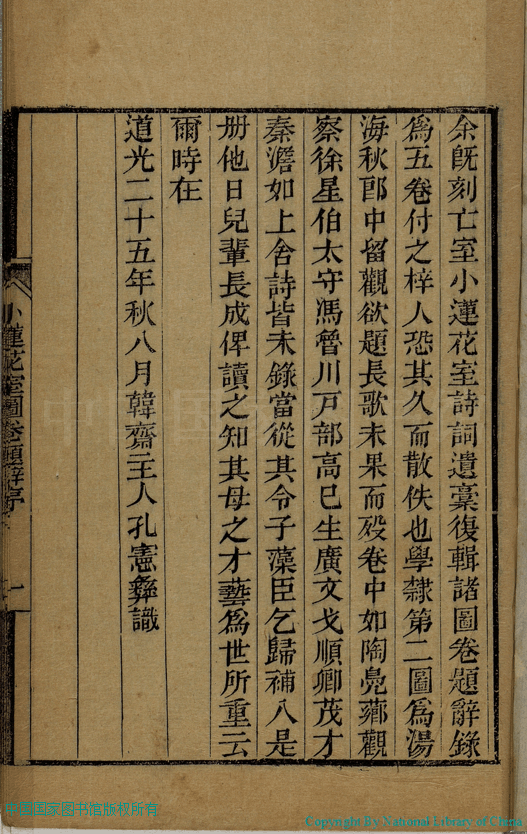 余旣刻亡室小蓮花室詩詞遺稾復輯諸圖卷題辭錄
為五卷付之梓人恐其久而散佚也學隸第二圖為湯
海秋郎中畱觀欲題長歌未果而歿卷中如陶鳧薌觀
察徐星伯太守馮魯川戸部高已生廣文戈順卿茂才
秦澹如上舍詩皆未錄當從其令子藻臣乞歸補入是
册他日兒輩長成俾讀之知其母之才藝為世所重云
爾時在
道光二十五年秋八月韓齋主人孔憲彝識
小蓮花室圖卷題辭序
一
中国国家图书馆版权所有
Copyright By National Library of China